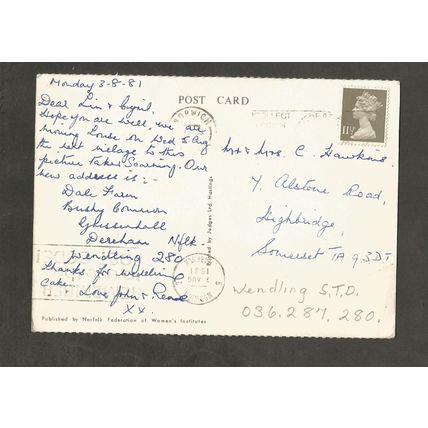 Monday 3-8-81
POST CARD
Dear Lin & Cyril,
Hope you are well, we are
moving house on Wed 5 Aug
the next village to this
picture Takes Scarning. Our
new address is :-
Dale Farm
Bushy Common
Gressenhall
Dereham Nflk.
Wendling 280
Thanks for wedding
cake. Love John & Rene
XX.
Published by Norfolk Federation of Women's Institutes
Printed by Judges Ltd. Hastings
NORWICH
11½
Mr & Mrs. C. Hawkins.
4, Alstone Road,
Highbridge,
Somerset TA 9 3DT
Wendling S.T.D.
036.287.280.